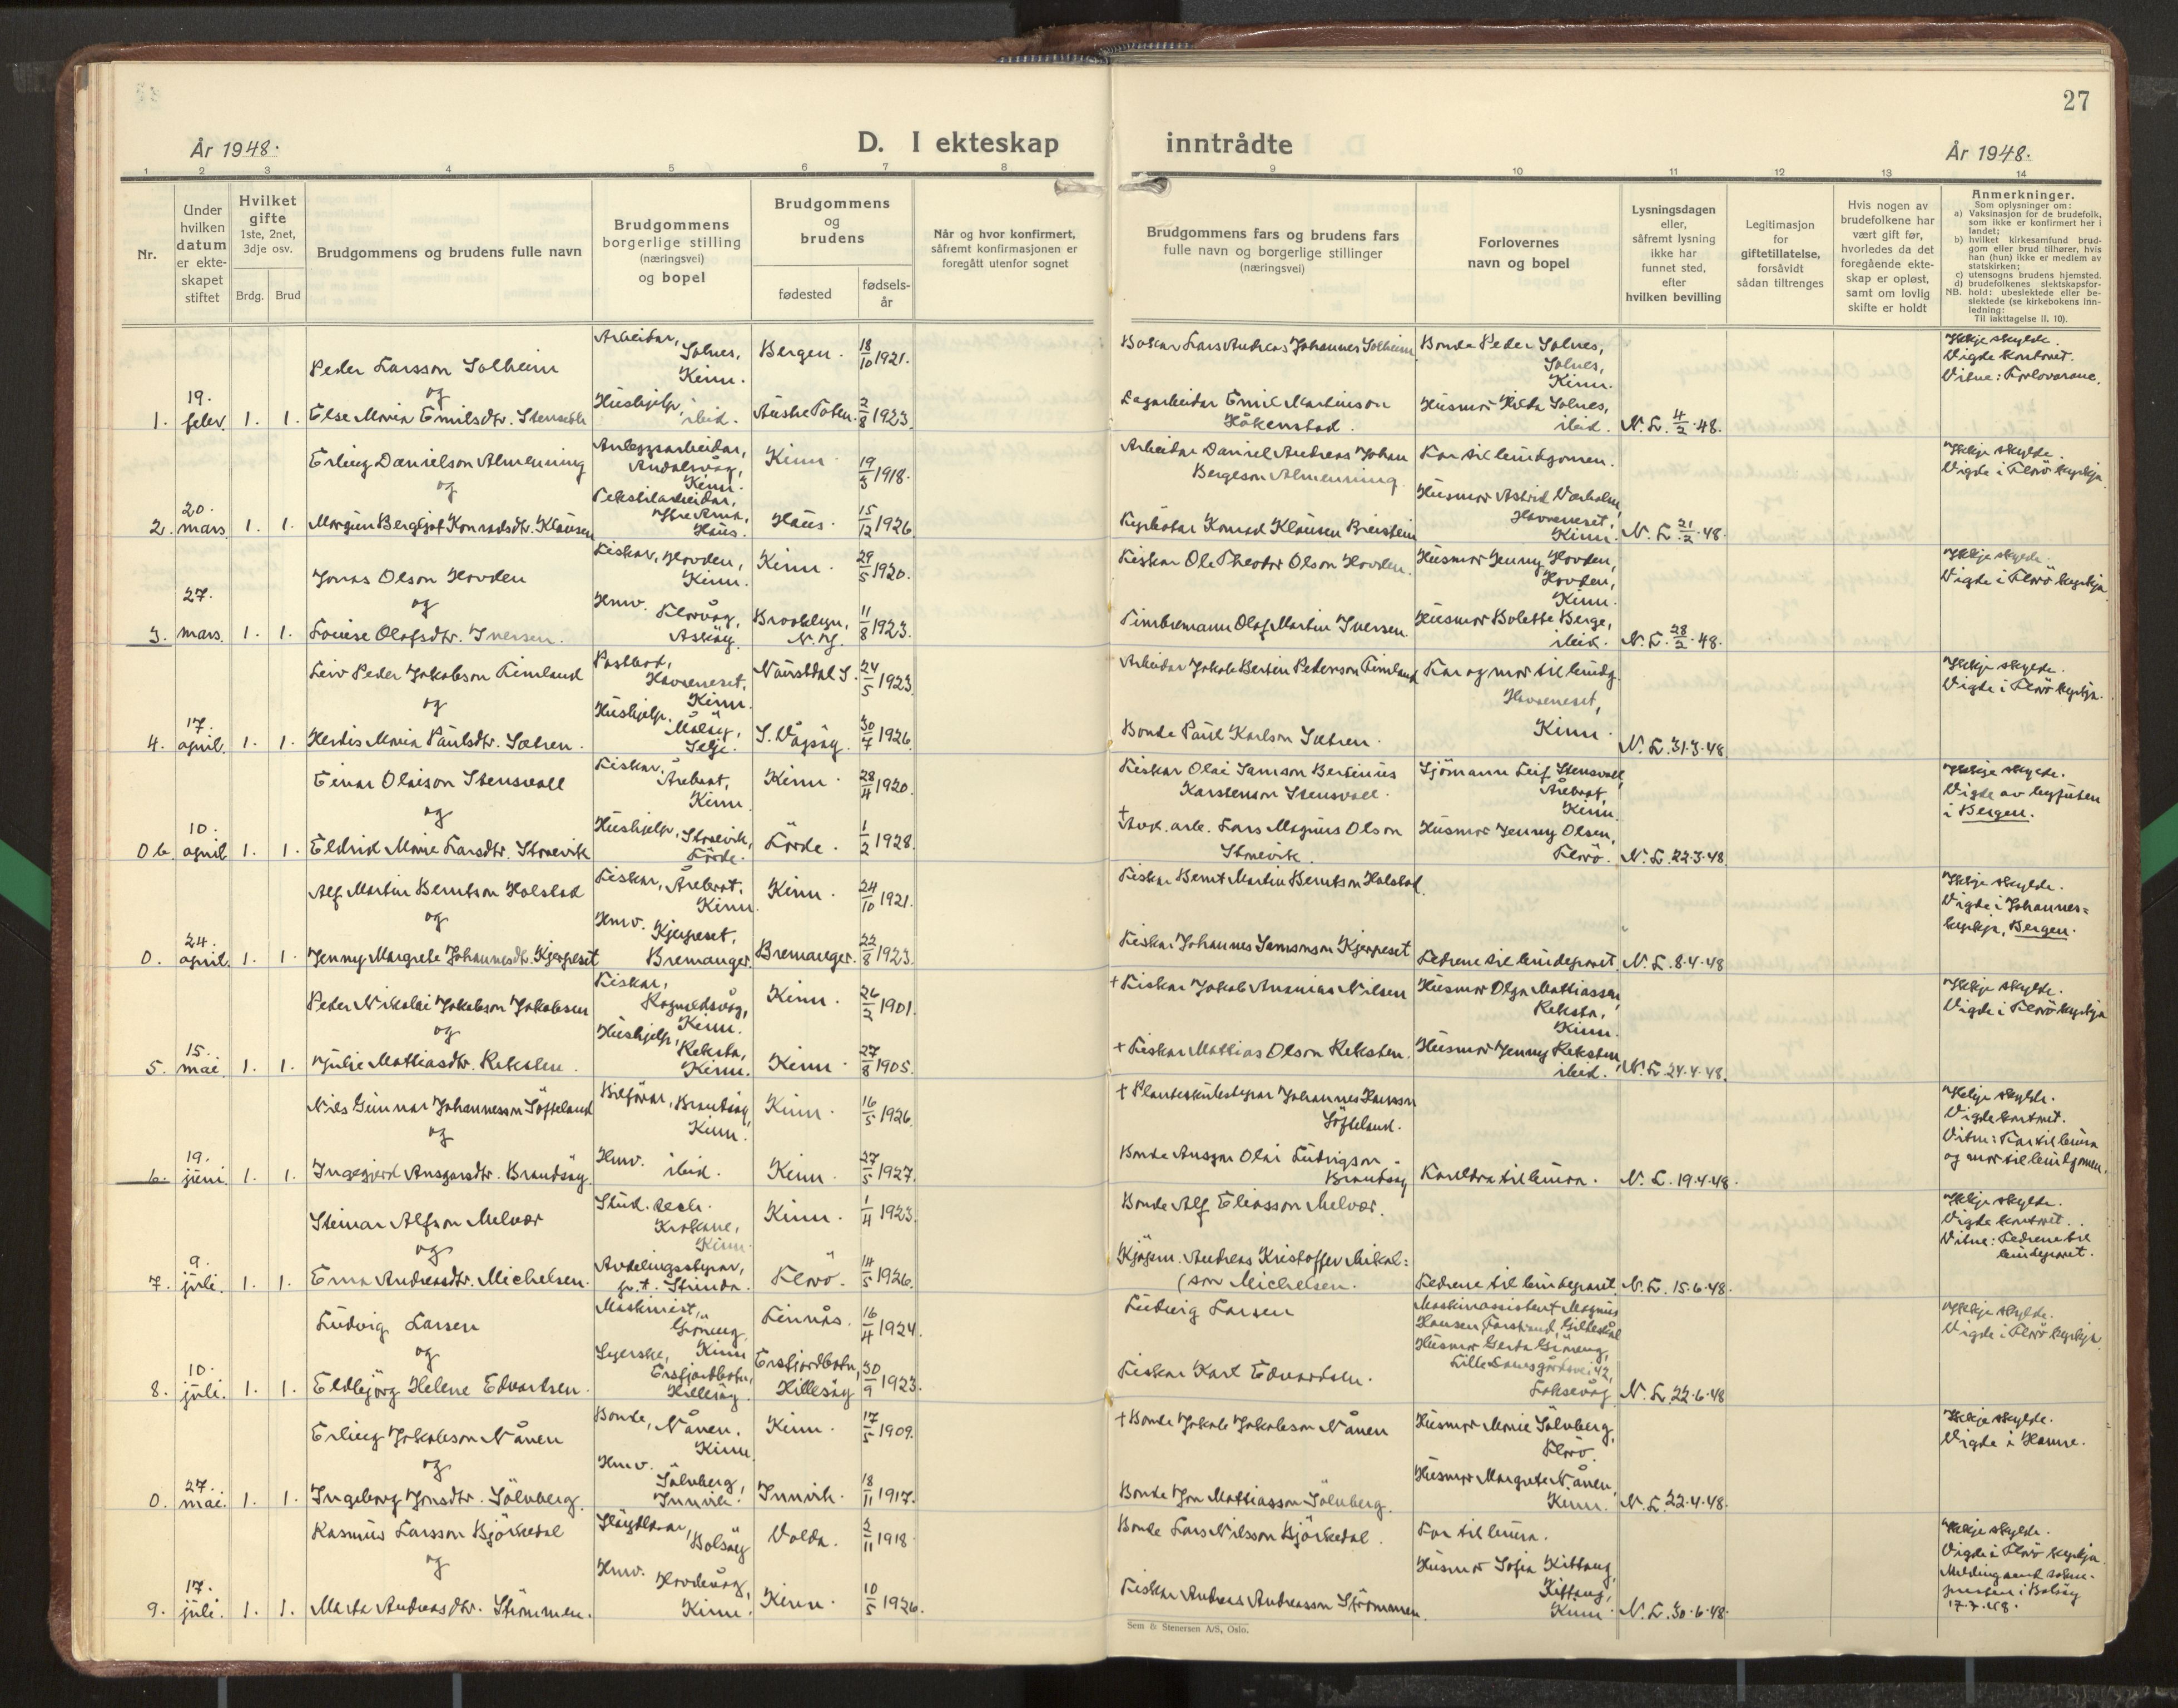 27
År 1948.
D. I ekteskap inntrådte
År 1948.
1 2 3 4 5 6 7 8 9 10 11 12 13 14
Nr.
Under
hvilken
datum
er ekte-
skapet
stiftet
Hvilket
gifte
1ste, 2net,
3dje osv.
Brdg. Brud
Brudgommens og brudens fulle navn
Brudgommens
borgerlige stilling
(næringsvei)
og bopel
Brudgommens
og
brudens
fødested
fødsels-
år
Når og hvor konfirmert,
såfremt konfirmasjonen er
foregått utenfor sognet
Brudgommens fars og brudens fars
fulle navn og borgerlige stillinger
(næringsvei)
Forlovernes
navn og bopel
Lysningsdagen
eller,
såfremt lysning
ikke har
funnet sted,
efter
hvilken bevilling
Legitimasjon
for
giftetillatelse,
forsåvidt
sådan tiltrenges
Hvis nogen av
brudefolkene har
vært gift før,
hvorledes da det
foregående ekte-
skap er opløst,
samt om lovlig
skifte er holdt
Anmerkninger.
Som oplysninger om:
a) Vaksinasjon for de brudefolk,
som ikke er konfirmert her i
landet;
b) hvilket kirkesamfund brud-
gom eller brud tilhører, hvis
han (hun) ikke er medlem av
statskirken;
c) utensogns brudens hjemsted.
d) brudefolkenes slektskapsfor-
NB. hold: ubeslektede eller be-
slektede (se kirkebokens inn-
ledning:
Til iakttagelse II, 10).
1. 19. febr. 1. 1.
Peder Larsson Solheim
og
Else Maria Emilsdtr.
Arbeidar,
Solnes,
Kinn.
Hushjelp,
ibid.
Bergen. 18/10 1921.
Austre Toten. 2/8 1923.
Baker Lars Andreas Johannes Solheim
Lagarbeidar Emil Martinson
Håkenstad.
Bonde Peder Solnes,
Solnes,
Kinn.
Husmor Hilda Solnes,
ibid.
N. L. 4/2.48.
Ikkje skylde.
Vigde kontoret.
Vitne: Forlovarane.
2. 20. mars 1. 1.
Erling Danielson Almenning
og
Margun Bergljot Konradsdtr. Klausen
Anleggsarbeidar,
Kinn.
Tekstilarbeidar,
Ytre Arna,
Haus.
Kinn. 19/3 1918.
Haus. 15/12 1926.
Arbeidar Daniel Andreas Johan
Bergeson Almenning
Fyrbøtar Konrad Klausen
Far til brudgomen.
Husmor Astrid
Havreneset,
Kinn.
N. L. 21/2.48.
Ikkje skylde.
Vigde i Florö kyrkja.
3. 27. mars. 1. 1.
Jonas Olson Hovden
og
Louise Olafsdtr. Iversen.
Fiskar, Hovden,
Kinn.
Hmv.
Florvåg,
Askøy.
Kinn. 29/5 1920.
Brooklyn, N.Y. 11/8 1923.
Fiskar Ole Theodor Olson Hovden.
Timbremann Olaf Martin Iversen.
Husmor Jenny Hovden,
Hovden,
Kinn.
Husmor Bolette Berge,
ibid.
N. L. 28/2.48.
Ikkje skylde.
Vigde i Florö kyrkja.
4. 17. april. 1. 1.
Leiv Peder Jakobson Timland
og
Herdis Maria Paulsdtr. Sætren.
Postbod,
Havreneset,
Kinn.
Hushjelp.
Måløy,
Selje.
Naustdal S. 24/5 1923.
S. Vågsøy. 30/7 1926.
Arbeidar Jakob Bertin Pederson Timland
Bonde Paul Karlson Sætren.
Far og mor til brudg.
Havreneset,
Kinn.
N. L. 31.3.48.
Ikkje skylde.
Vigde i Florö kyrkja.
0b. 10. april 1. 1.
Einar Olaison Stensvoll
og
Eldrid Marie Larsdtr. Storevik
Fiskar,
Årebrot,
Kinn.
Hushjelp, Storevik,
Förde.
Kinn. 28/4 1920.
Förde. 1/2 1928.
Fiskar Olai Samson Bertinius
Karstenson Stensvoll.
+ Avh. arb. Lars Magnus Olson
Storevik.
Sjömann Leif Stensvoll,
Årebrot,
Kinn.
Husmor Jenny Olsen,
Florö.
N. L. 22.3.48.
Ikkje skylde.
Vigde av byfuten
i Bergen.
0. 24. april. 1. 1.
Alf Martin Berntson Holstad
og
Jenny Margrete Johannesdtr. Kjerpeset
Fiskar, Årebrot,
Kinn.
Hmv.
Kjerpeset,
Bremanger.
Kinn. 24/10 1921.
Bremanger. 22/8 1923.
Fiskar Bernt Martin Berntson Holstad.
Fiskar Johannes Samsonson Kjerpeset
Fedrene til brudeparet.
N. L. 8.4.48
Ikkje skylde.
Vigde i Johannes=
kyrkja, Bergen.
5. 15. mai. 1. 1.
Peder Nikolai Jakobson Jakobsen
og
Julie Mattiasdtr. Reksten.
Fiskar,
Rognaldsvåg,
Kinn.
Hushjelp,
Reksta,
Kinn.
Kinn. 26/2 1901.
Kinn. 27/8 1905.
+ Fiskar Jakob Ananias Nilsen
+ Fiskar Mattias Olson Reksten.
Husmor Olga Mattiassen,
Reksta,
Kinn.
Husmor Jenny Reksten,
ibid.
N. L. 24.4.48.
Ikkje skylde.
Vigde i Florö kyrkja
6. 19. juni. 1. 1.
Nils Gunnar Johannesson Söfteland
og
Ingegjerd Ansgarsdtr. Brandsöy.
Bilförar, Brandsöy,
Kinn.
Hmv. ibid.
Kinn. 16/5 1926.
Kinn. 27/5 1927.
+ Planteskulestyrar Johannes Hansson
Söfteland.
Bonde Ansgar Olai Ludvigson
Brandsöy
Foreldra til brura.
N. L. 19.4.48.
Ikkje skylde.
Vigde kontoret.
Vitne: Far til brura
og mor til brudgomen.
7. 9. juli. 1. 1.
Steinar Alfson Melvær
og
Erna Andreasdtr. Michelsen.
Stud. tech.
Krokane,
Kinn.
Avdelingsstyrar,
p.t. Strinda.
Kinn. 1/4 1923.
Florö. 14/5 1926.
Bonde Alf Eliasson Melvær.
Kjöpm. Andreas Kristoffer Mikal=
(son Michelsen.
Fedrene til brudeparet.
N. L. 15.6.48.
Ikkje skylde.
Vigde kontoret.
Vitne: Fedrene til
brudeparet.
8. 10. juli. 1. 1.
Ludvig Larsen
og
Eldbjörg Helene Edvardsen.
Maskinist,
Gröneng,
Kinn
Syerske,
Ersfjordbotn,
Hillesöy.
Linnås. 16/4 1924.
Ersfjordbotn, Hillesöy 30/9 1923.
Ludvig Larsen
Fiskar Kart Edvardsen.
Maskinassistent Magnus
Hansen, Forstrand, Gildeskål
Husmor Gerda Gröneng,
Lille Damsgårdsvei 42,
Laksevåg.
N. L. 22.6.48
Ikkje skylde.
Vigde i Florö kyrkja.
0. 27. mai. 1. 1.
Erling Jakobson Nånen
og
Ingeborg Jonsdtr. Sölvberg.
Bonde, Nånen.
Kinn.
Hmv.
Sölvberg,
Innvik.
Kinn. 17/5 1909.
Innvik. 18/11 1917.
+ Bonde Jakob Jakobson Nånen
Bonde Jon Mattiasson Sölvberg.
Husmor Marie Sölvberg,
Florö.
Husmor Margrete Nånen,
Kinn.
N. L. 22.4.48.
Ikkje skylde.
Vigde i Hamre.
9. 17. juli. 1. 1.
Rasmus Larsson Björkedal
og
Marta Andreasdtr. Strömmen.
Bolsöy
Hmv. Hovdevåg,
Kinn.
Volda. 2/11 1918.
Kinn. 10/5 1926.
Bonde Lars Nilsson Björkedal.
Fiskar Andreas Andreasson Strömmen.
Far til brura.
Husmor Sofia Kittang,
Kittang,
Kinn.
N. L. 30.6.48.
Ikkje skylde.
Vigde i Florö kyrkja.
Melding sendt sokne-
presten i Bolsöy
17.7.48.
Sem & Stenersen A/S, Oslo.